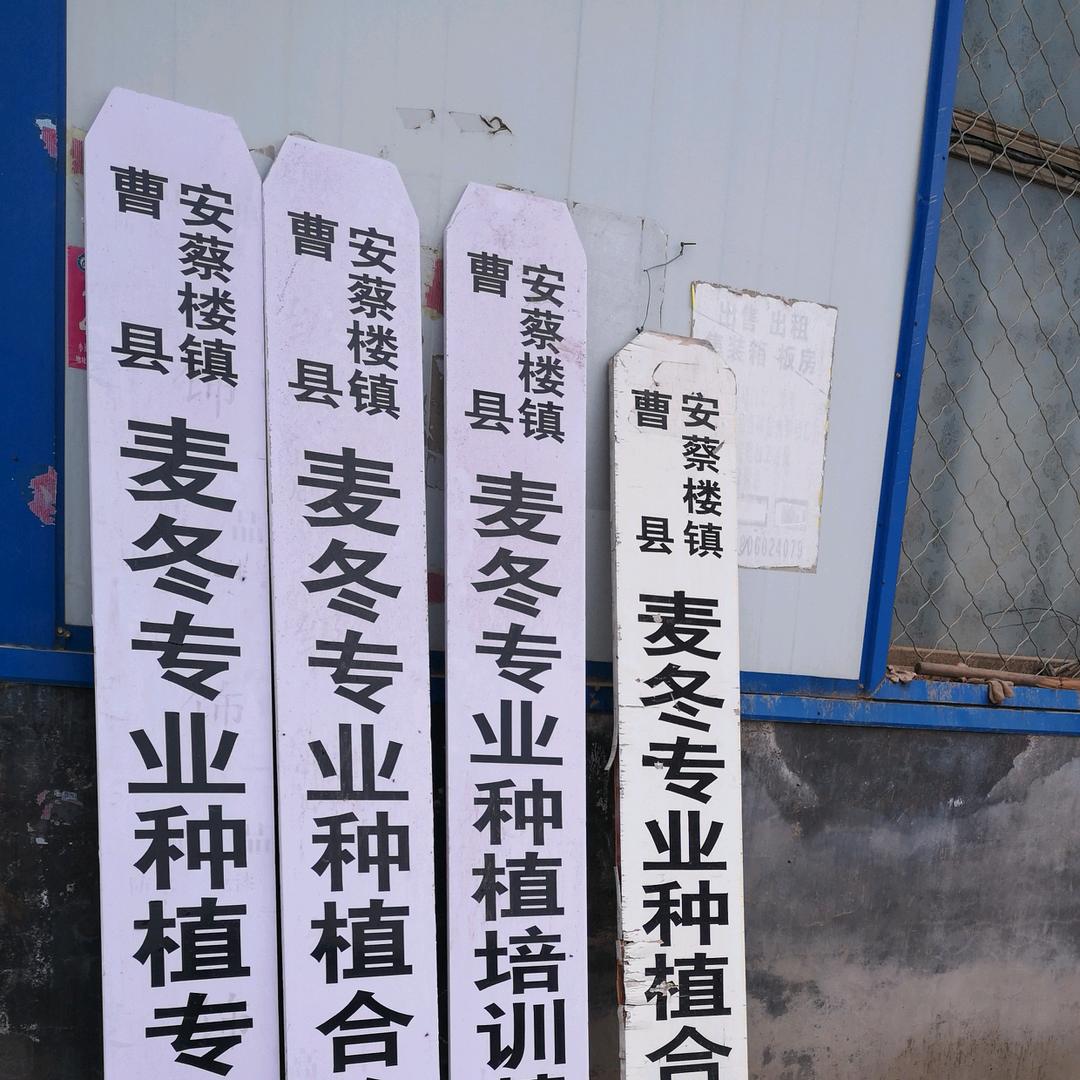 曹县
安蔡楼镇
麦冬专业种植专
曹县
安蔡楼镇
麦冬专业种植合
曹县
安蔡楼镇
麦冬专业种植培训
曹县
安蔡楼镇
麦冬专业种植合
出售 出租
装箱 板房